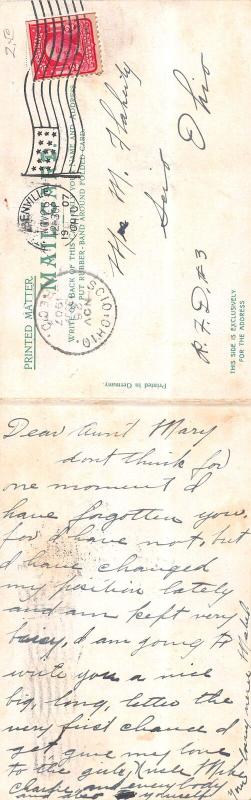 2.50
PRINTED MATTER.
MAILCARD
WRITE ON BACK OF THIS CARD YOUR NAME AND ADDRESS
PUT RUBBER-BAND AROUND FOLDED CARD.
1907
OHIO
SCIO, OHIO
NOV
1907
REC'D.
Mrs M. Flaherty
Scio Ohio
R. F. D. #3
Printed in Germany.
THIS SIDE IS EXCLUSIVELY
FOR THE ADDRESS
Dear Aunt Mary
dont think for
one moment I
have forgotten you,
for I have not, but
I have changed
my position lately
and am kept very
busy, I am going to
write you a nice
big, long, letter the
very first chance I
get give my love
to the girls, Uncle Mike
Charlie, and everybody
and also yourself